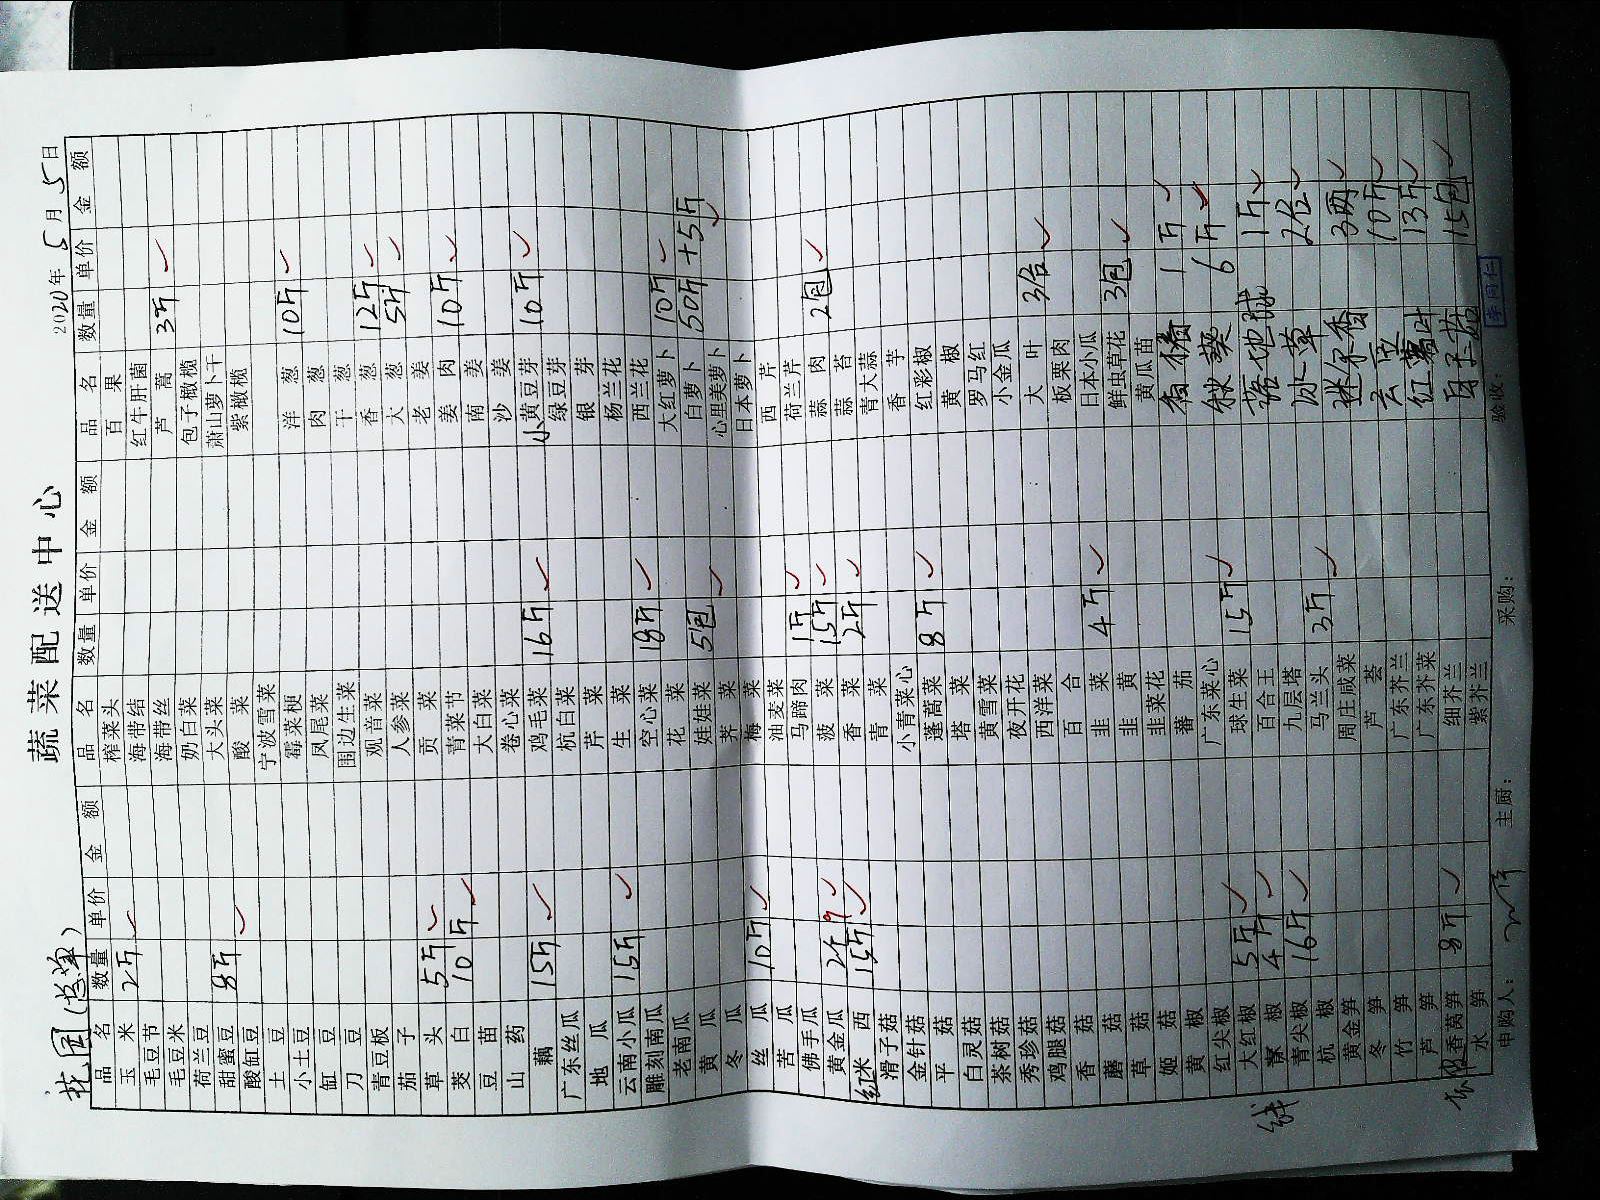 蔬菜配送中心
花园(总单)
2020年5月5日
品名 数量 单价 金额
玉米 2斤
毛豆节
毛豆米
荷兰豆
甜蜜豆 8斤
酸缸豆
土豆
小土豆
缸豆
刀豆
青豆板
茄子
草头 5斤
茭白 10斤
豆苗
山药
藕 15斤
广东丝瓜
地瓜
云南小瓜 15斤
雕刻南瓜
老南瓜
黄瓜
冬瓜
丝瓜 10斤
苦瓜
佛手瓜
黄金瓜
红米西 15斤
滑子菇
金针菇
平菇
白灵菇
茶树菇
秀珍菇
鸡腿菇
香菇
蘑菇
草菇
姬菇
黄椒
红尖椒
大红椒 5斤
椒 4斤
青尖椒 16斤
杭椒
黄金笋
冬笋
竹笋
芦笋
香莴笋 8斤
水笋
品名 数量 单价 金额
榨菜头
海带结
海带丝
奶白菜
大头菜
酸菜
宁波雪菜
霉菜梗
凤尾菜
围边生菜
观音菜
人参菜
贡菜
青菜节
大白菜
卷心菜
鸡毛菜 16斤
杭白菜
芹菜
生菜
空心菜 18斤
花菜
娃娃菜 5包
荠菜
梅菜
油麦菜
马蹄肉 1斤
菠菜 15斤
香菜 2斤
青菜
小青菜心
蓬蒿菜 8斤
塔菜
黄雪菜
夜开花
西洋菜
百合
韭菜 4斤
韭黄
韭菜花
蕃茄
广东菜心
球生菜 15斤
百合王
九层塔
马兰头 3斤
周庄咸菜
芦荟
广东芥兰
广东芥菜
细芥兰
紫芥兰
品名 数量 单价 金额
百果
红牛肝菌
芦蒿 3斤
包子橄榄
萧山萝卜干
紫橄榄
洋葱 10斤
肉葱
干葱
香葱 12斤
大葱 5斤
老姜
姜肉 10斤
南姜
沙姜
小黄豆芽 10斤
绿豆芽
银芽
杨兰花
西兰花
大红萝卜 10斤
白萝卜 50斤+5斤
心里美萝卜
日本萝卜
西芹
荷兰芹
蒜肉 2包
蒜苔
青大蒜
香芋
红彩椒
黄椒
罗马红
小金瓜
大叶 3合
板栗肉
日本小瓜
鲜虫草花 3包
黄瓜苗
1斤
秋葵 6斤
1斤
冰草 2盒
迷你香 3两
云豆 10斤
红薯叶 13斤
白玉菇 15包
申购人：
主厨：
采购：
验收：